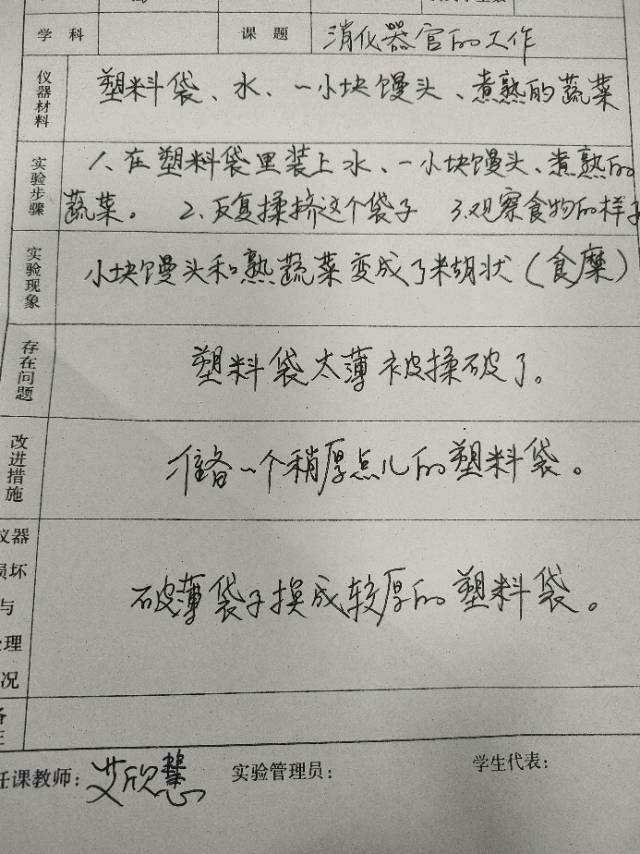 学科 课题 消化器官的工作
仪器材料 塑料袋、水、一小块馒头、煮熟的蔬菜
实验步骤 1、在塑料袋里装上水、一小块馒头、煮熟的
蔬菜。 2、反复揉挤这个袋子 3、观察食物的样子
实验现象 小块馒头和熟蔬菜变成了糊状(食糜)
存在问题 塑料袋太薄被揉破了。
改进措施 准备一个稍厚点儿的塑料袋。
仪器
损坏
与
处理
情况
破薄袋子换成较厚的塑料袋。
备注
任课教师：艾欣慧 实验管理员： 学生代表：